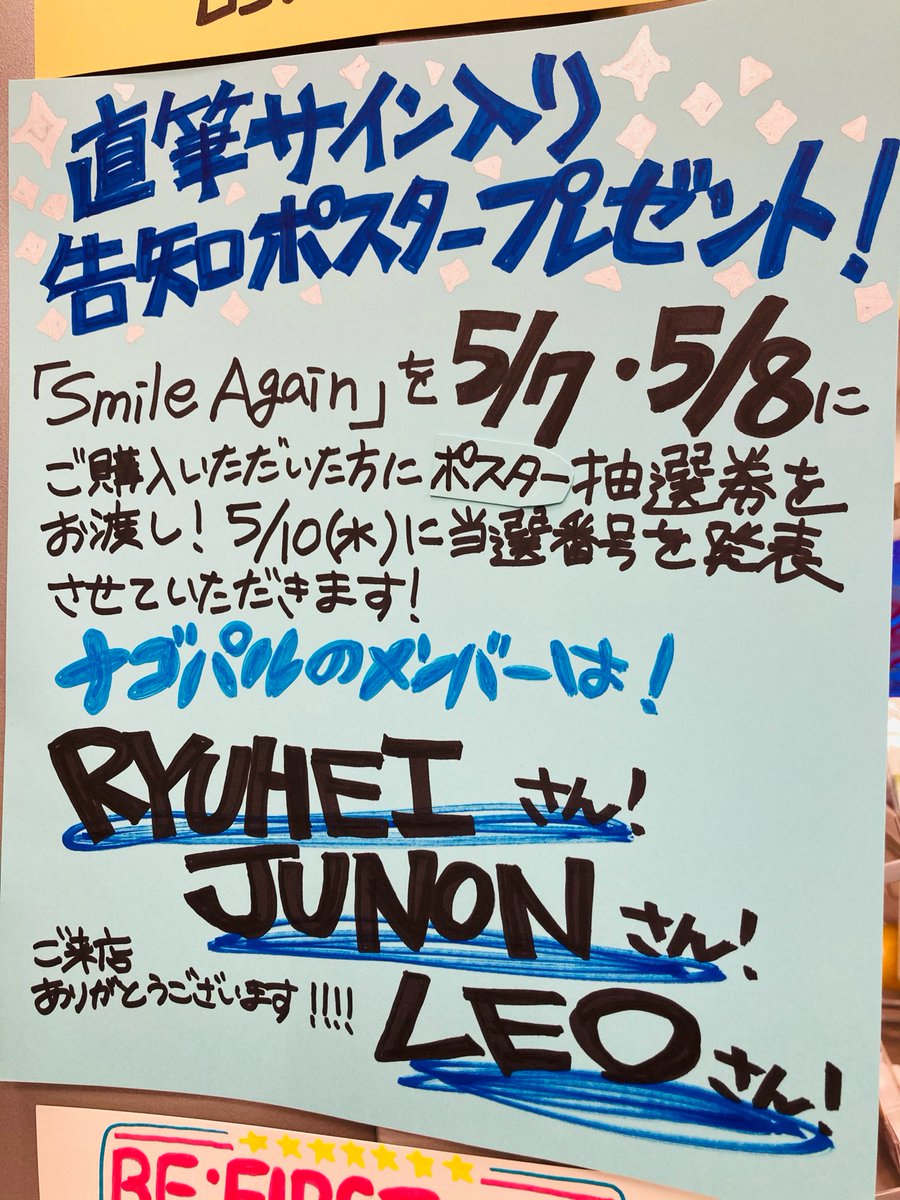 直筆サイン入り
告知ポスタープレゼント!
「Smile Again」を5/7・5/8に
ご購入いただいた方にポスター抽選券を
お渡し! 5/10(水)に当選番号を発表
させていただきます!
ナゴパルのメンバーは!
RYUHEIさん!
JUNONさん!
LEOさん!
ご来店
ありがとうございます!!!!
BE:FIRST